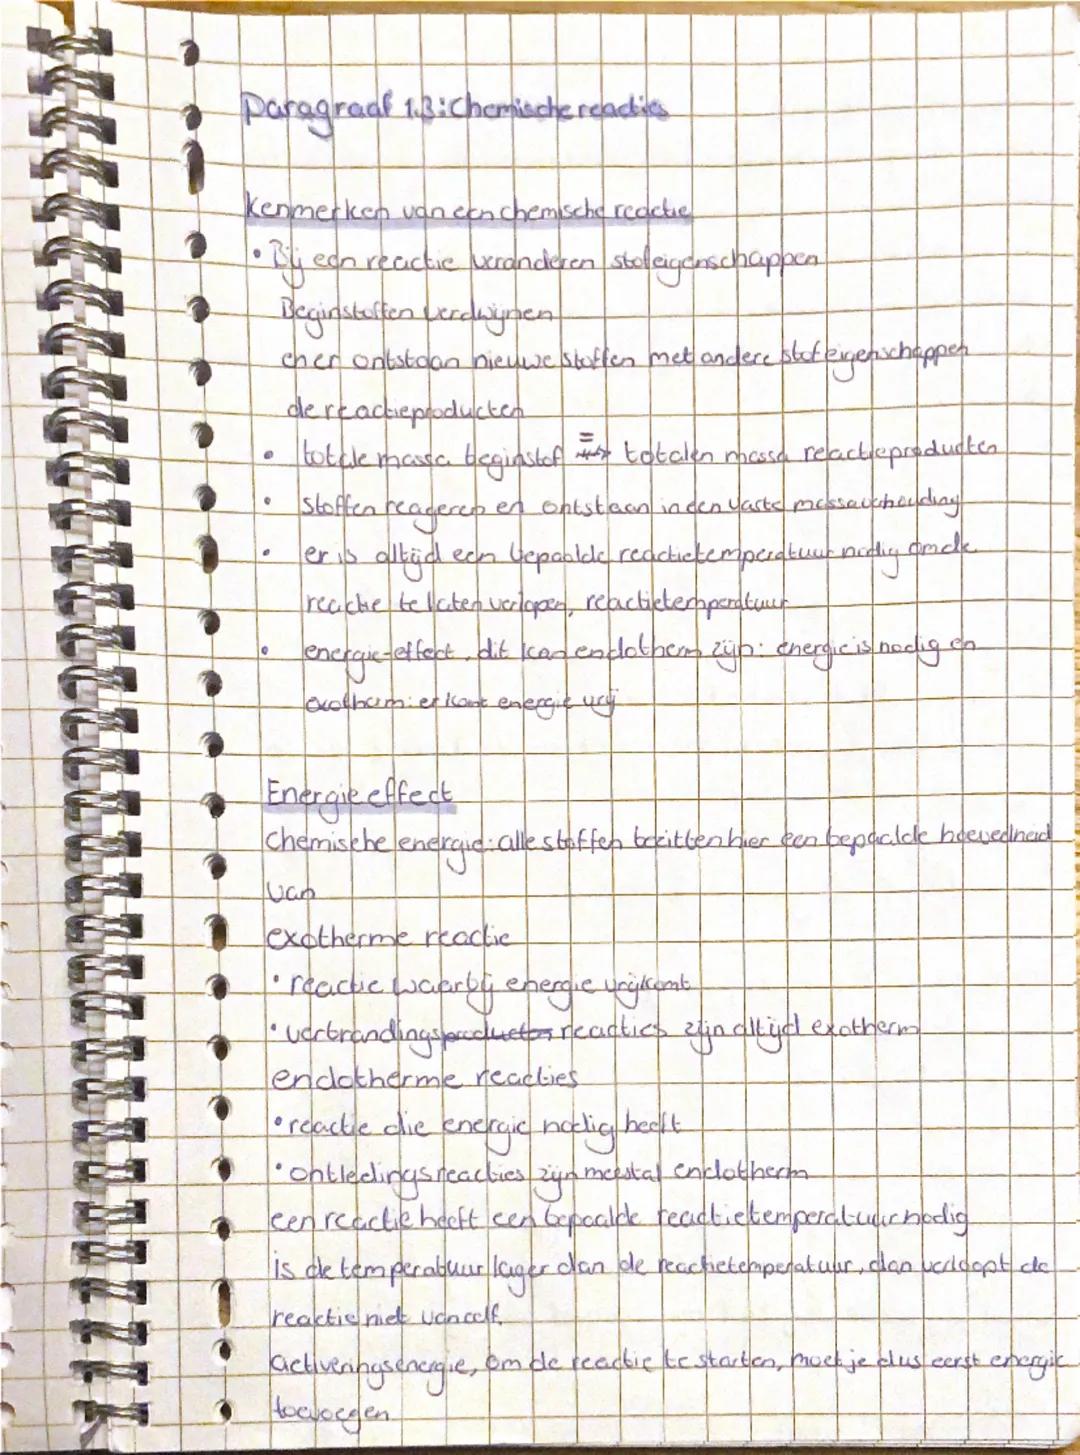 Paragraaf 1.3: Chemische reacties
Kenmerken van een chemische reactie
• Bij een reactie veranderen stofeigenschappen
Beginstoffen verdwijnen
en er ontstaan nieuwe stoffen met andere stofeigenschappen
de reactieproducten
• totale massa beginstof = totalen massa relactieproducten
• stoffen reageren en ontstaan in een vaste massaverhouding
• er is altijd een bepaalde reactietemperatuur nodig om de
reactie te laten verlopen, reactietemperatuur
• energie-effect, dit kan endotherm zijn: energie is nodig en
exotherm: er komt energie vrij
Energie effect
Chemische energie: alle stoffen bezitten hier een bepaalde hoeveelheid
van
exotherme reactie
• reactie waarbij energie vrijkomt
• verbrandingsreacties zijn altijd exotherm
endotherme reacties
• reactie die energie nodig heeft
• ontledingsreacties zijn meestal endotherm
een reactie heeft een bepaalde reactietemperatuur nodig
is de temperatuur lager dan de reactietemperatuur, dan verloopt de
reactie niet vanzelf.
activeringsenergie, om de reactie te starten, moet je dus eerst energie
toevoegen